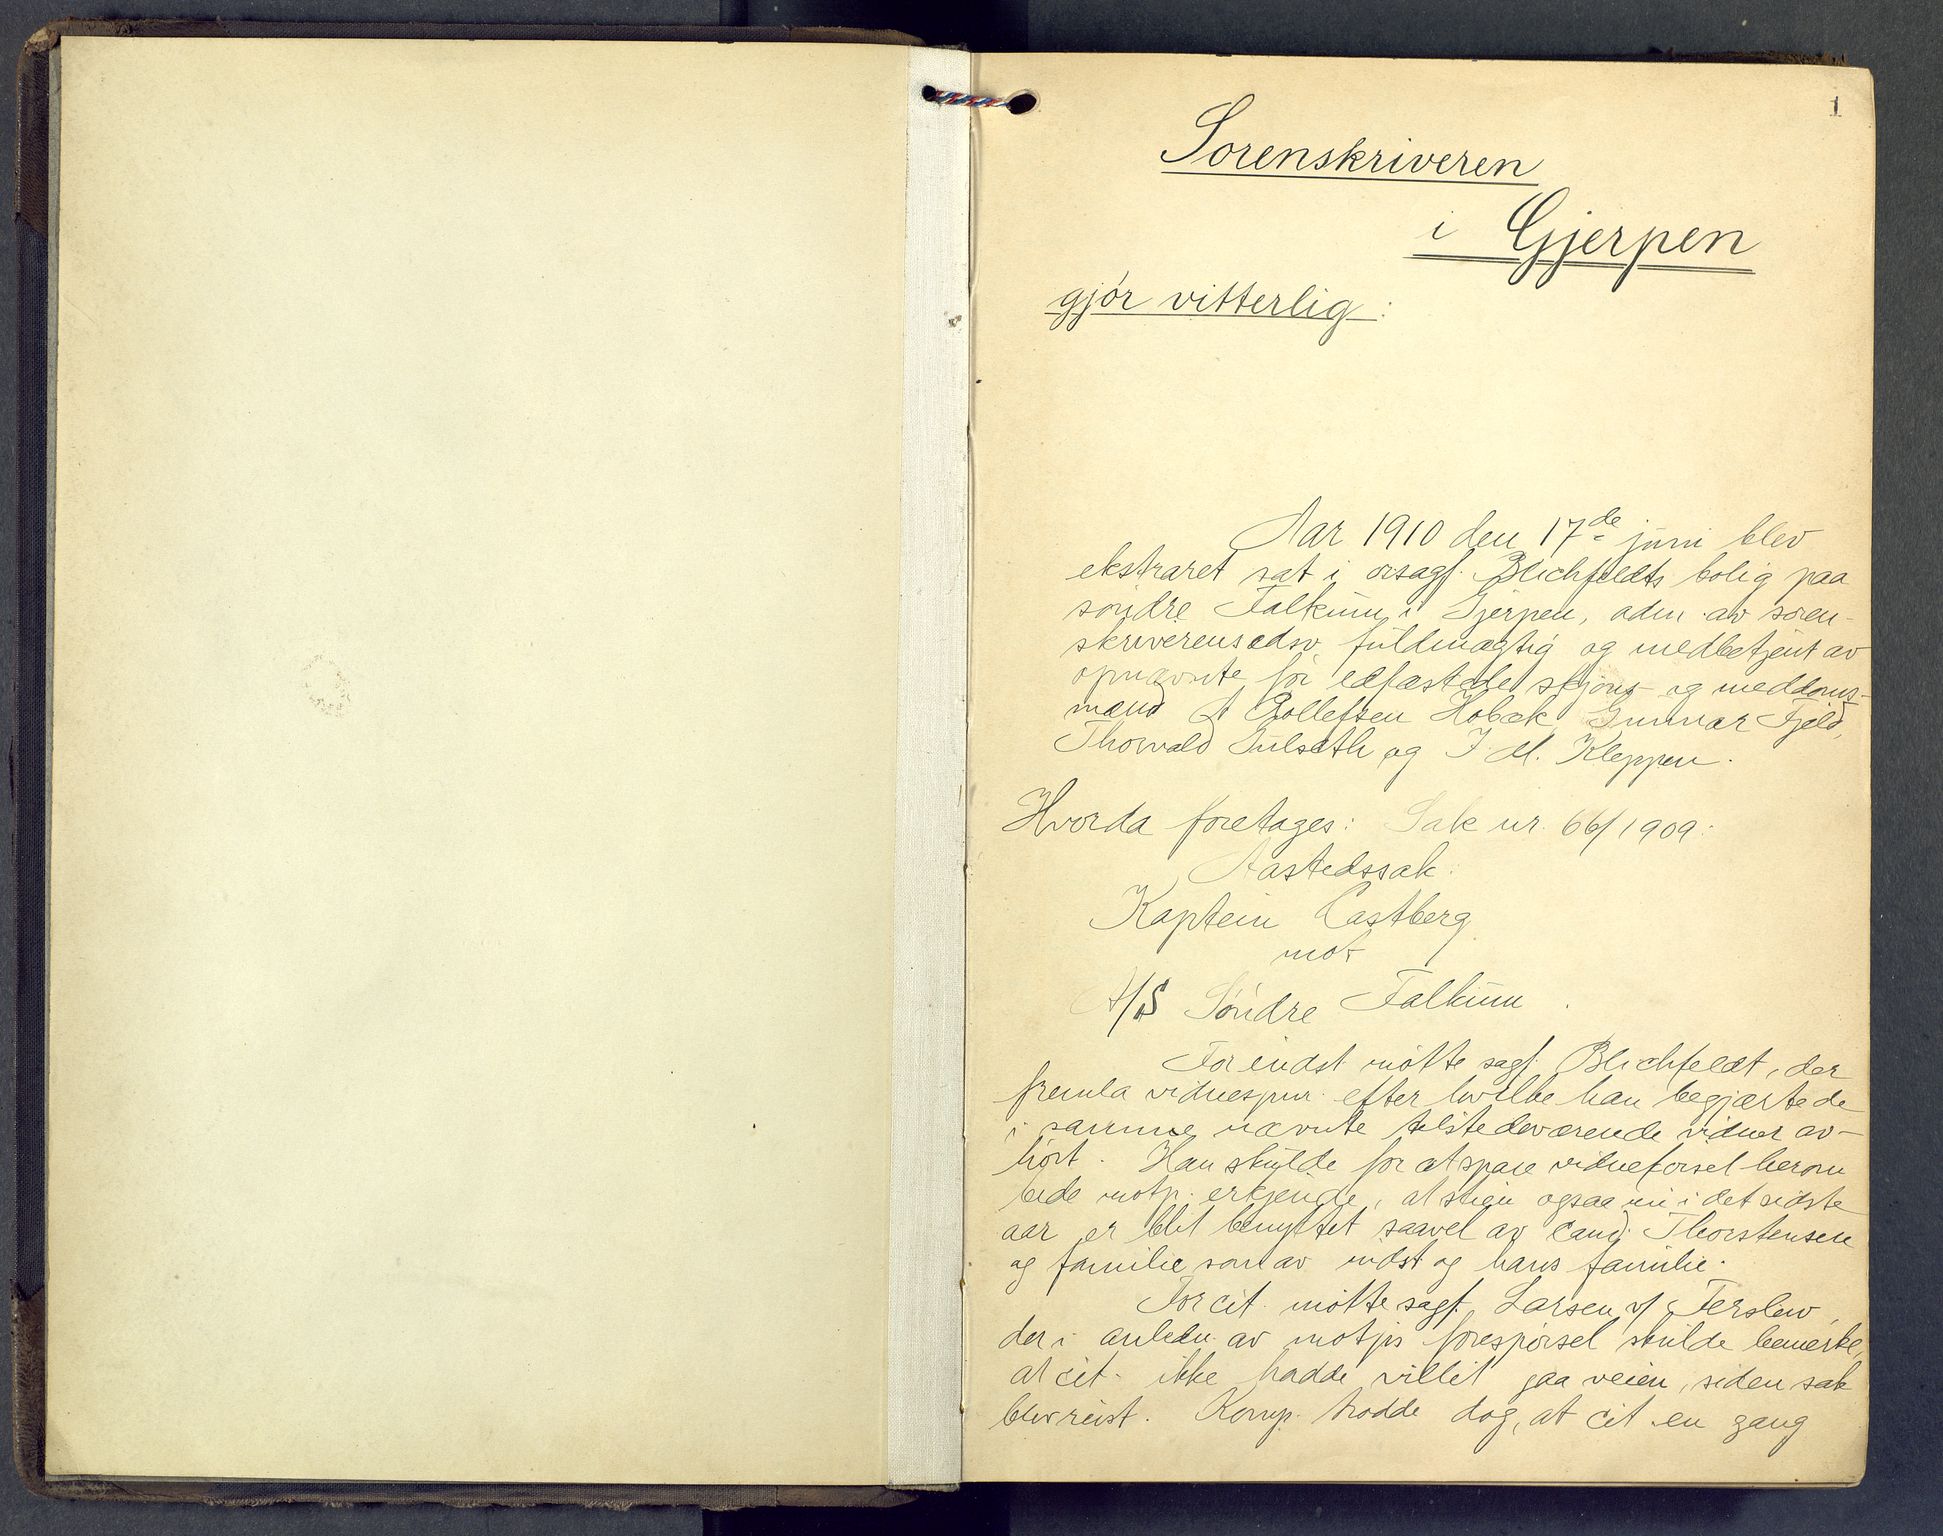 1
Sorenskriveren
i Gjerpen
gjór vitterlig:
Aar 1910 den 17de juni blev
ekstraret sat i osagf. Blichfeldts bolig paa
søndre Falkum i Gjerpen, adm. av soren-
skriverens edsv. fuldmægtig og medbetjent av
opnævnte før edfæstede skjøns- og meddoms-
mænd A Rollefsen Hobæk, Gunnar Fjeld,
Thorvald Gulseth og I. M. Kleppen.
Hvorda foretages: Sak nr. 66/1909:
Aastedssak:
Kaptein Castberg
mot
A/S Søndre Falkum.
For indst møtte sagf. Blichfeldt, der
fremla vidnespm. efter hvilke han begjærte de
i samme nævnte tilstedeværende vidner av-
hørt. Han skulde for at spare vidneførsel herom
bede motp. erkjende, at stien ogsaa nu i det sidste
aar er blit benyttet saavel av cand. Thorstensen
og familie som av indst og hans familie.
For cit. møtte sagf. Larsen v/ Terslew,
der i anledn. av motp's forespørsel skulde bemerke,
at cit. ikke hadde villet gaa veien, siden sak
blev reist. Komp. trodde dog, at cit en gang